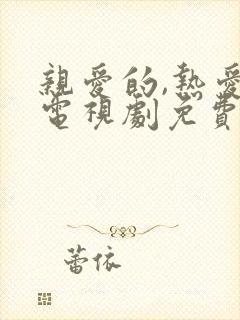 親愛的,熱愛
電視劇免費
蕾依